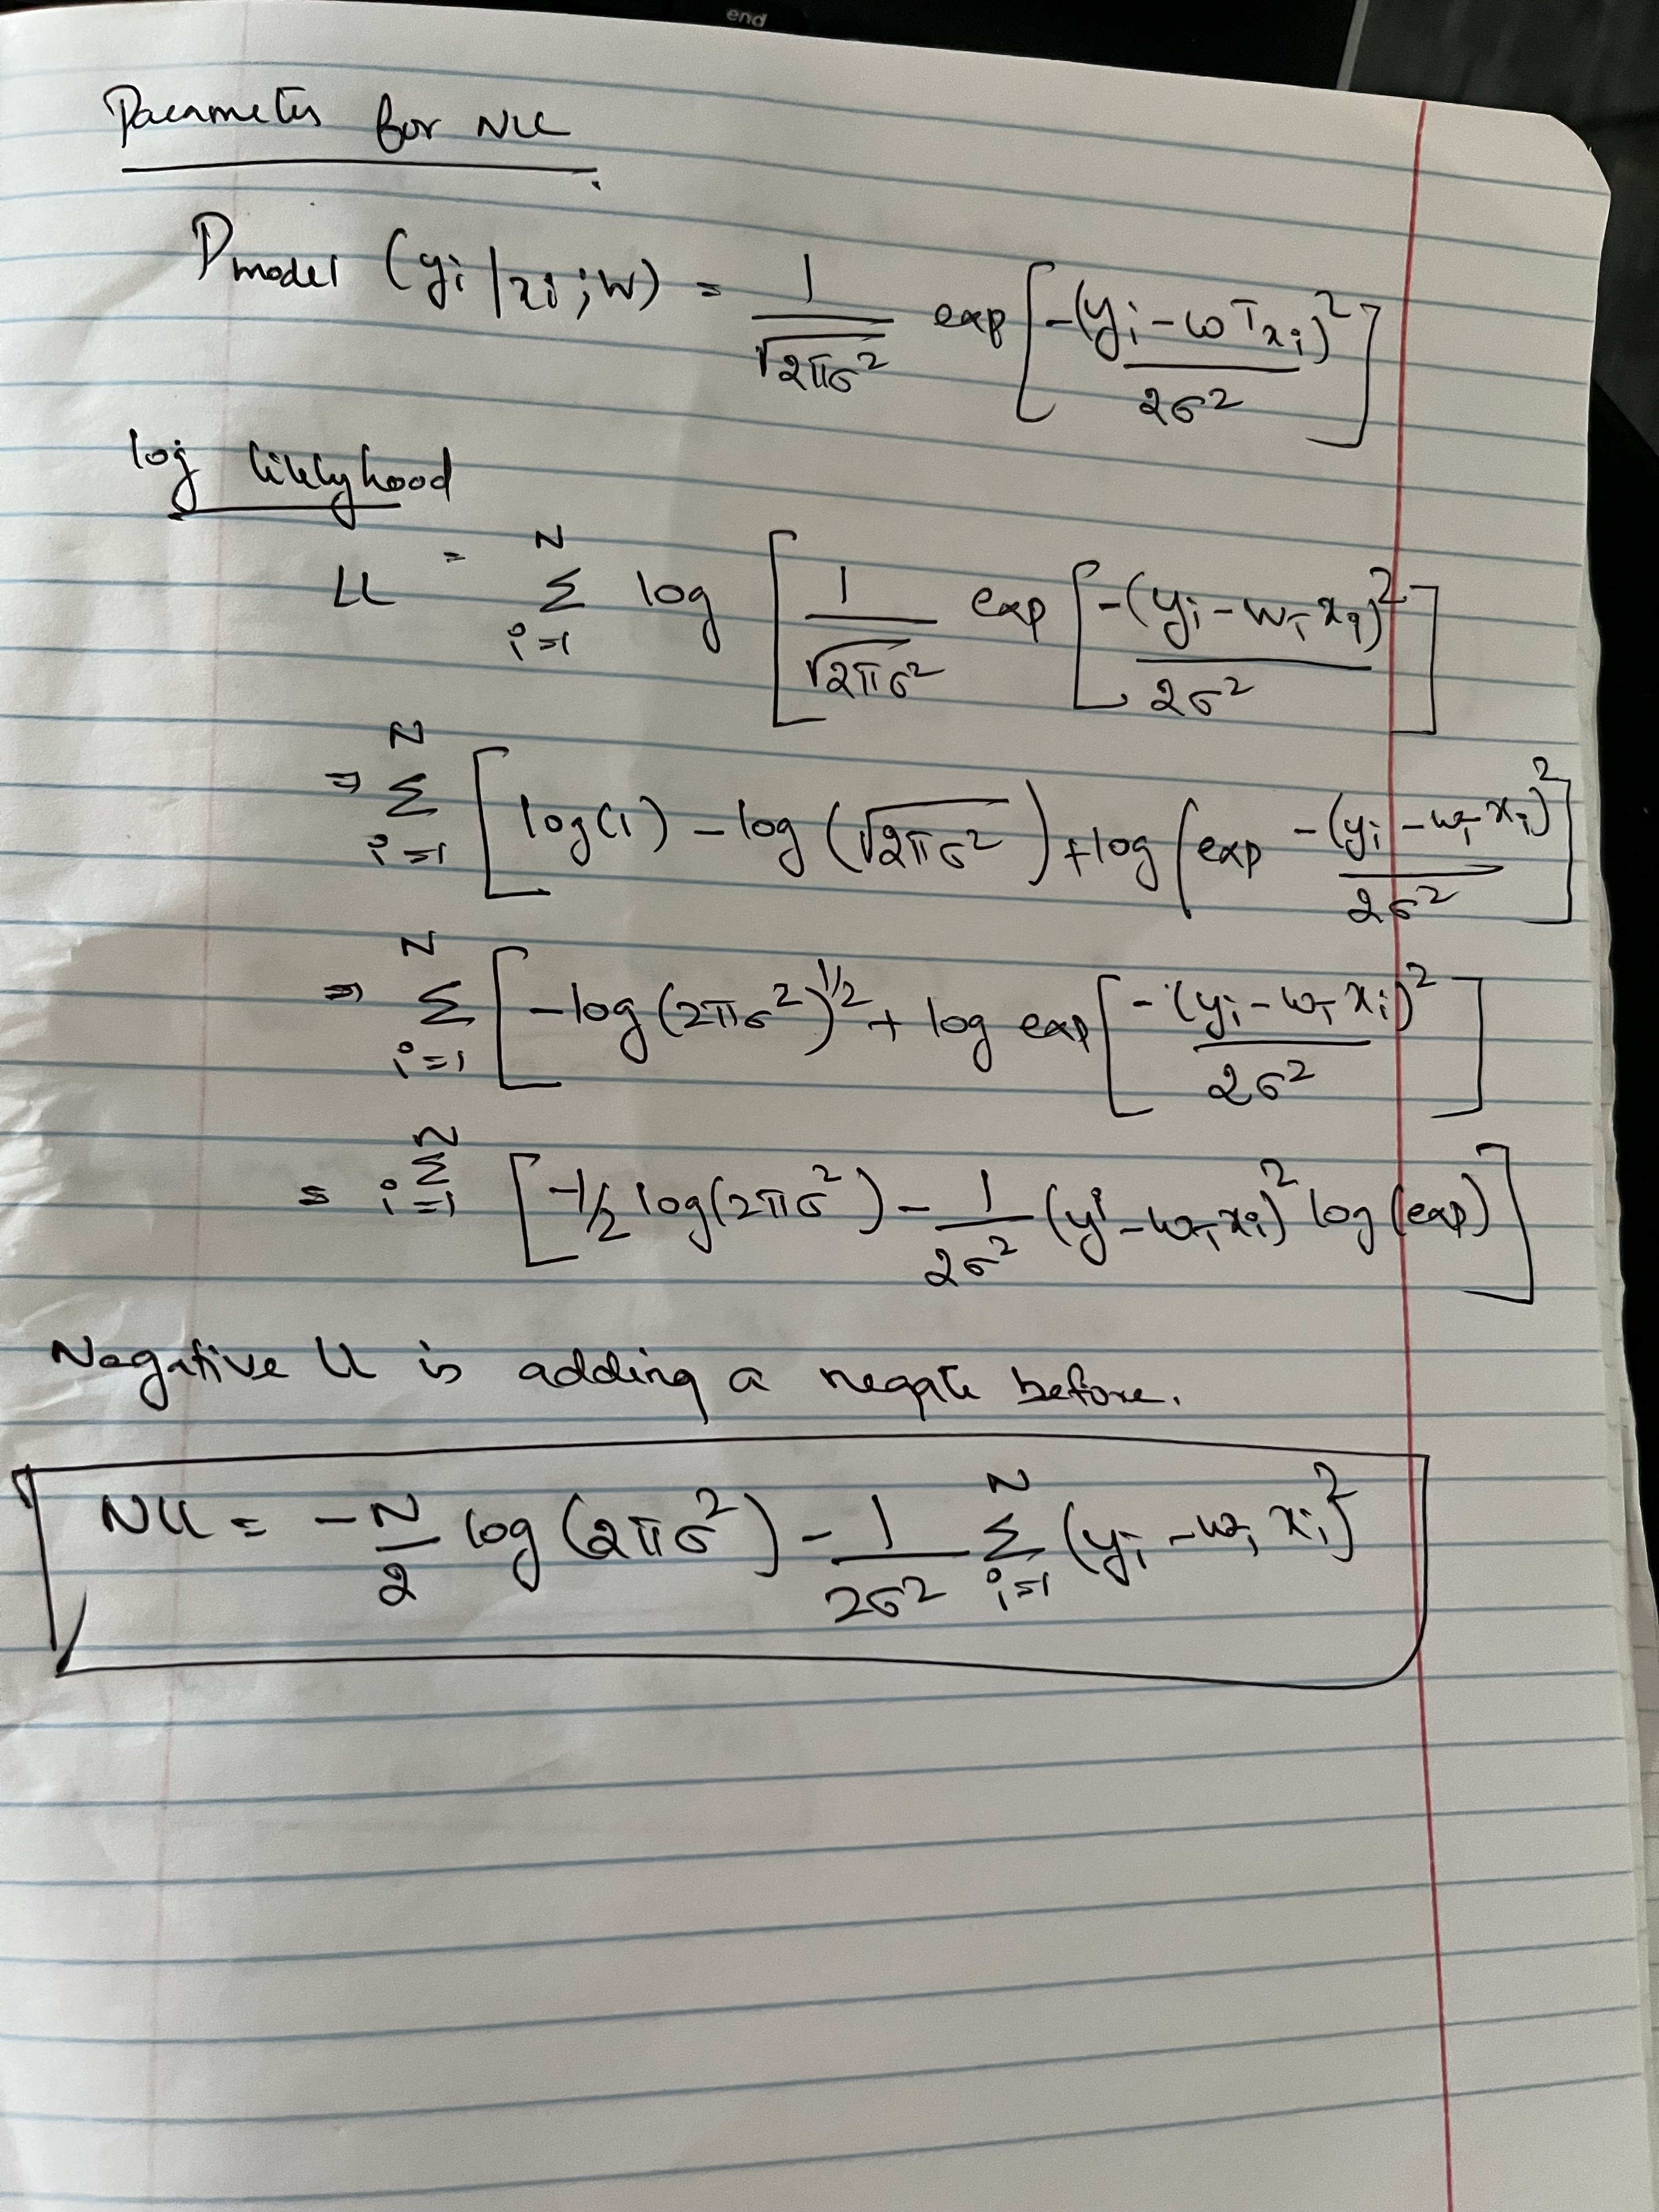 end
Parameter for NLL
P model (yi | xi ; W) = 1/√2πσ² exp[-(yi - wᵀxi)²/2σ²]
log likelyhood
LL = N Σ i=1 log [1/√2πσ² exp[-(yi - wᵀxi)²/2σ²]
⇒ N Σ i=1 [log(1) - log(√2πσ²) + log(exp -(yi - wᵀxi)²/2σ²]
⇒ N Σ i=1 [-log(2πσ²)^1/2 + log exp[-(yi - wᵀxi)²/2σ²]
= N Σ i=1 [-1/2 log(2πσ²) - 1/2σ² (yi - wᵀxi)² log(exp)]
Negative LL is adding a negate before.
NLL = -N/2 log(2πσ²) - 1/2σ² N Σ i=1 (yi - wᵀxi)²